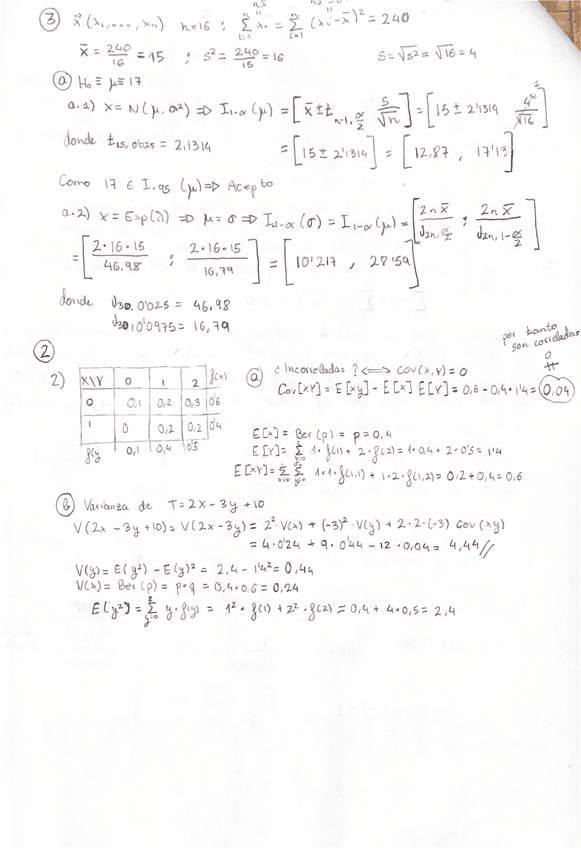 ③ x⃗ (x₁, ..., xₙ) n=16 ; Σxᵢ = Σ(xᵢ - x̄)² = 240
x̄ = 240/16 = 15 ; s² = 240/15 = 16 S = √s² = √16 = 4
ⓐ H₀ ≡ μ ≡ 17
a.1) X = N(μ, σ²) ⇒ I₁₋α(μ) = [x̄ ± t n-1, α/2 S/√n] = [15 ± 2'1314 4/√16]
donde t₁₅,₀'₀₂₅ = 2,1314 = [15 ± 2'1314] = [12,87 , 17'13]
Como 17 ∈ I.95 (μ) ⇒ Acepto
a.2) X = Exp(λ) ⇒ μ = σ ⇒ I₁₋α(σ) = I₁₋α(μ) = [2n x̄ / 2n, α/2 ; 2n x̄ / 2n, 1-α/2]
= [2·16·15 / 46,98 ; 2·16·15 / 16,79] = [10'217 , 28'59]
donde 30,0'025 = 46,98
30;0'0975 = 16,79
②
por tanto
son correladas
2) X\Y 0 1 2 f(x)
0 0,1 0,2 0,3 0'6
1 0 0,2 0,2 0'4
f(y 0,1 0,4 0'5
ⓐ ¿Incorreladas? ⟺ COV(X,Y) = 0
Cov[XY] = E[XY] - E[X] E[Y] = 0,6 - 0,4·1'4 = 0,04 ≠ 0
E[X] = Ber(p) = p = 0,4
E[Y] = Σ 1·f(1) + 2·f(2) = 1·0,4 + 2·0'5 = 1'4
E[XY] = Σ Σ 1·1·f(1,1) + 1·2·f(1,2) = 0'2 + 0,4 = 0'6
ⓑ Varianza de T = 2X - 3y + 10
V(2x - 3y + 10) = V(2x - 3y) = 2²·V(x) + (-3)²·V(y) + 2·2·(-3) cov(xy)
= 4·0'24 + 9·0'44 - 12·0,04 = 4,44//
V(y) = E(y²) - E(y)² = 2,4 - 1'4² = 0,44
V(x) = Ber(p) = p·q = 0,4·0,6 = 0,24
E(y²) = Σ y·f(y) = 1²·f(1) + 2²·f(2) = 0,4 + 4·0,5 = 2,4